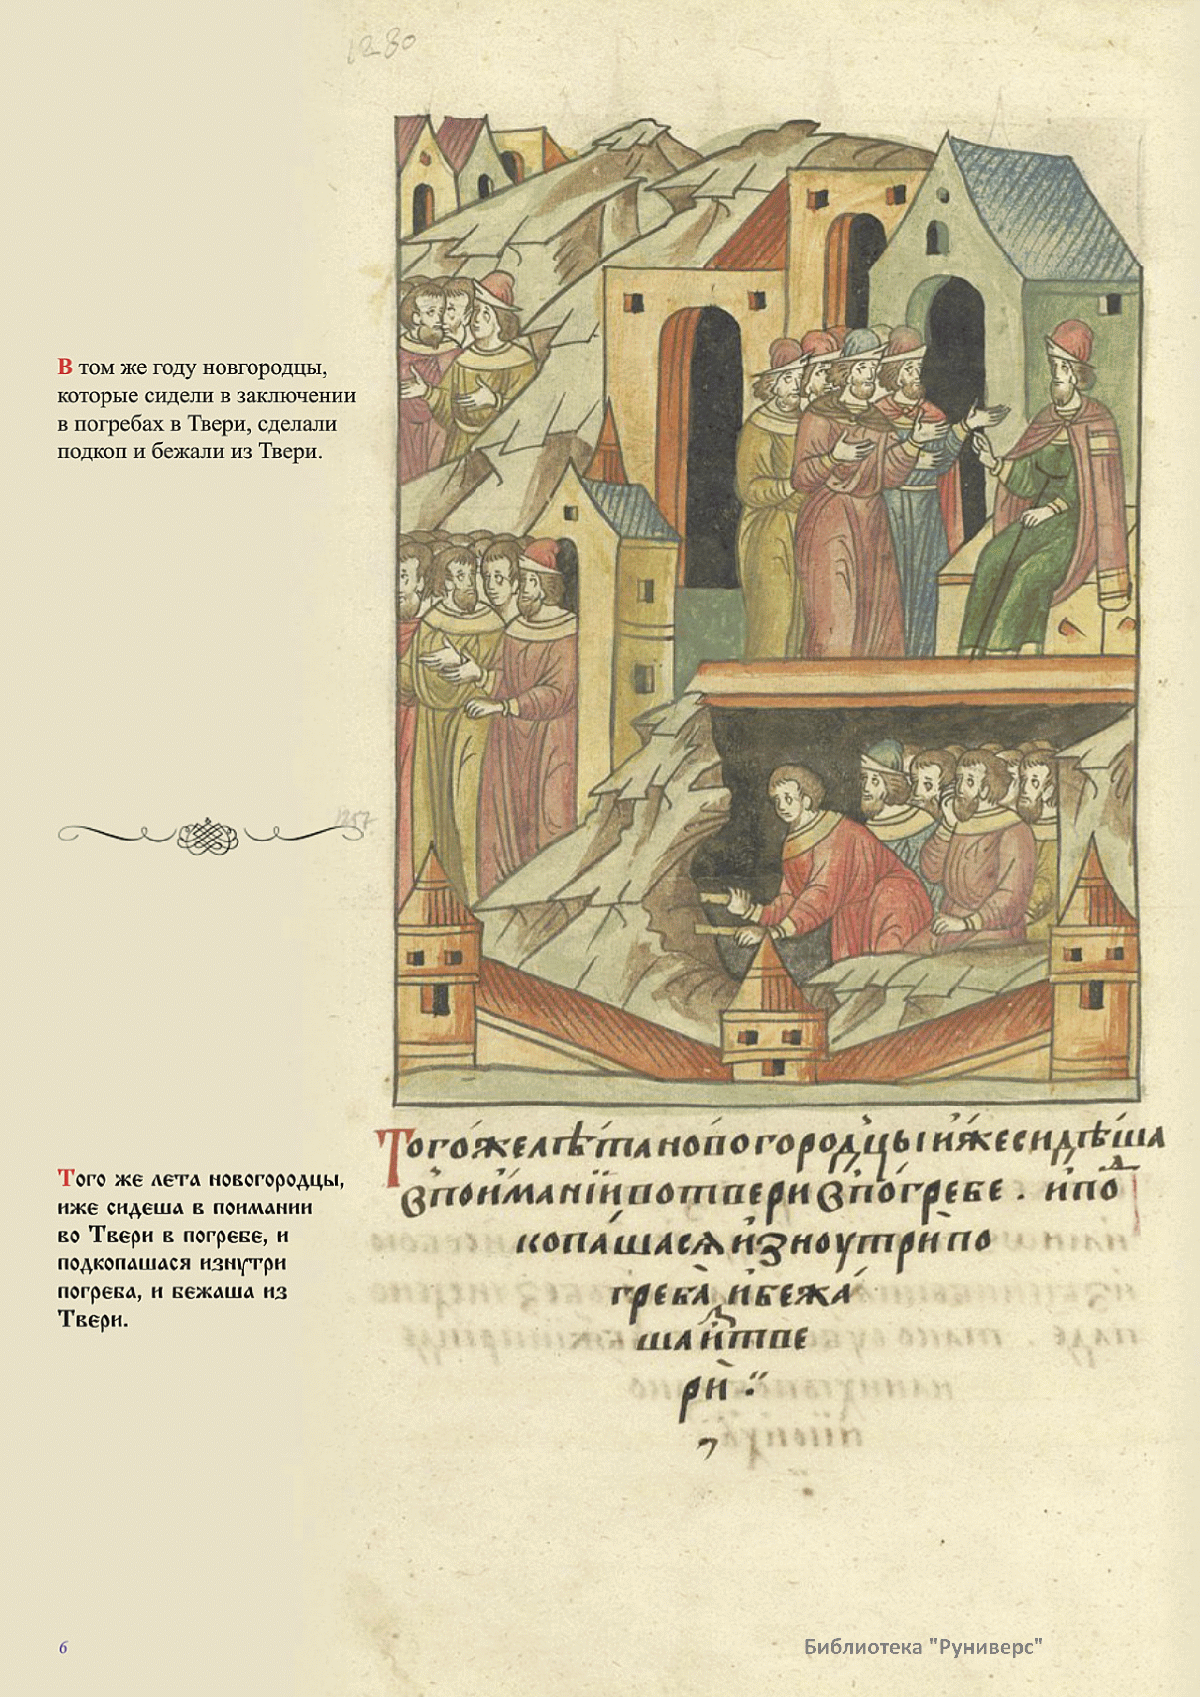 1280
В том же году новгородцы,
которые сидели в заключении
в погребах в Твери, сделали
подкоп и бежали из Твери.
1257
Того же лета новогородцы,
иже сидеша в поимании
во Твери в погребе, и
подкопашася изнутри
погреба, и бежаша из
Твери.
Тогоже лѣта новогородцы иже сидѣша
в поимании во твери в погребе . и по
копашася изноутри по
греба и бежа
ша и тве
ри
6
Библиотека "Руниверс"